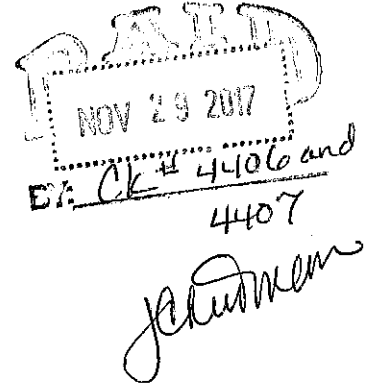 PAID
NOV 29 2017
BY: CK# 4406 and
4407